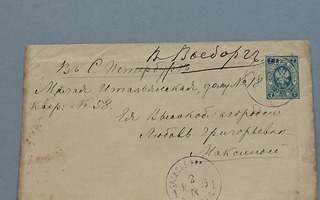 въ Выборгъ
Въ С Петербургъ
Малая Итальянская, домъ № 18.
квар: № 58.
Ея Высокоблагородію
Любовь Григорьевнѣ
Максимой